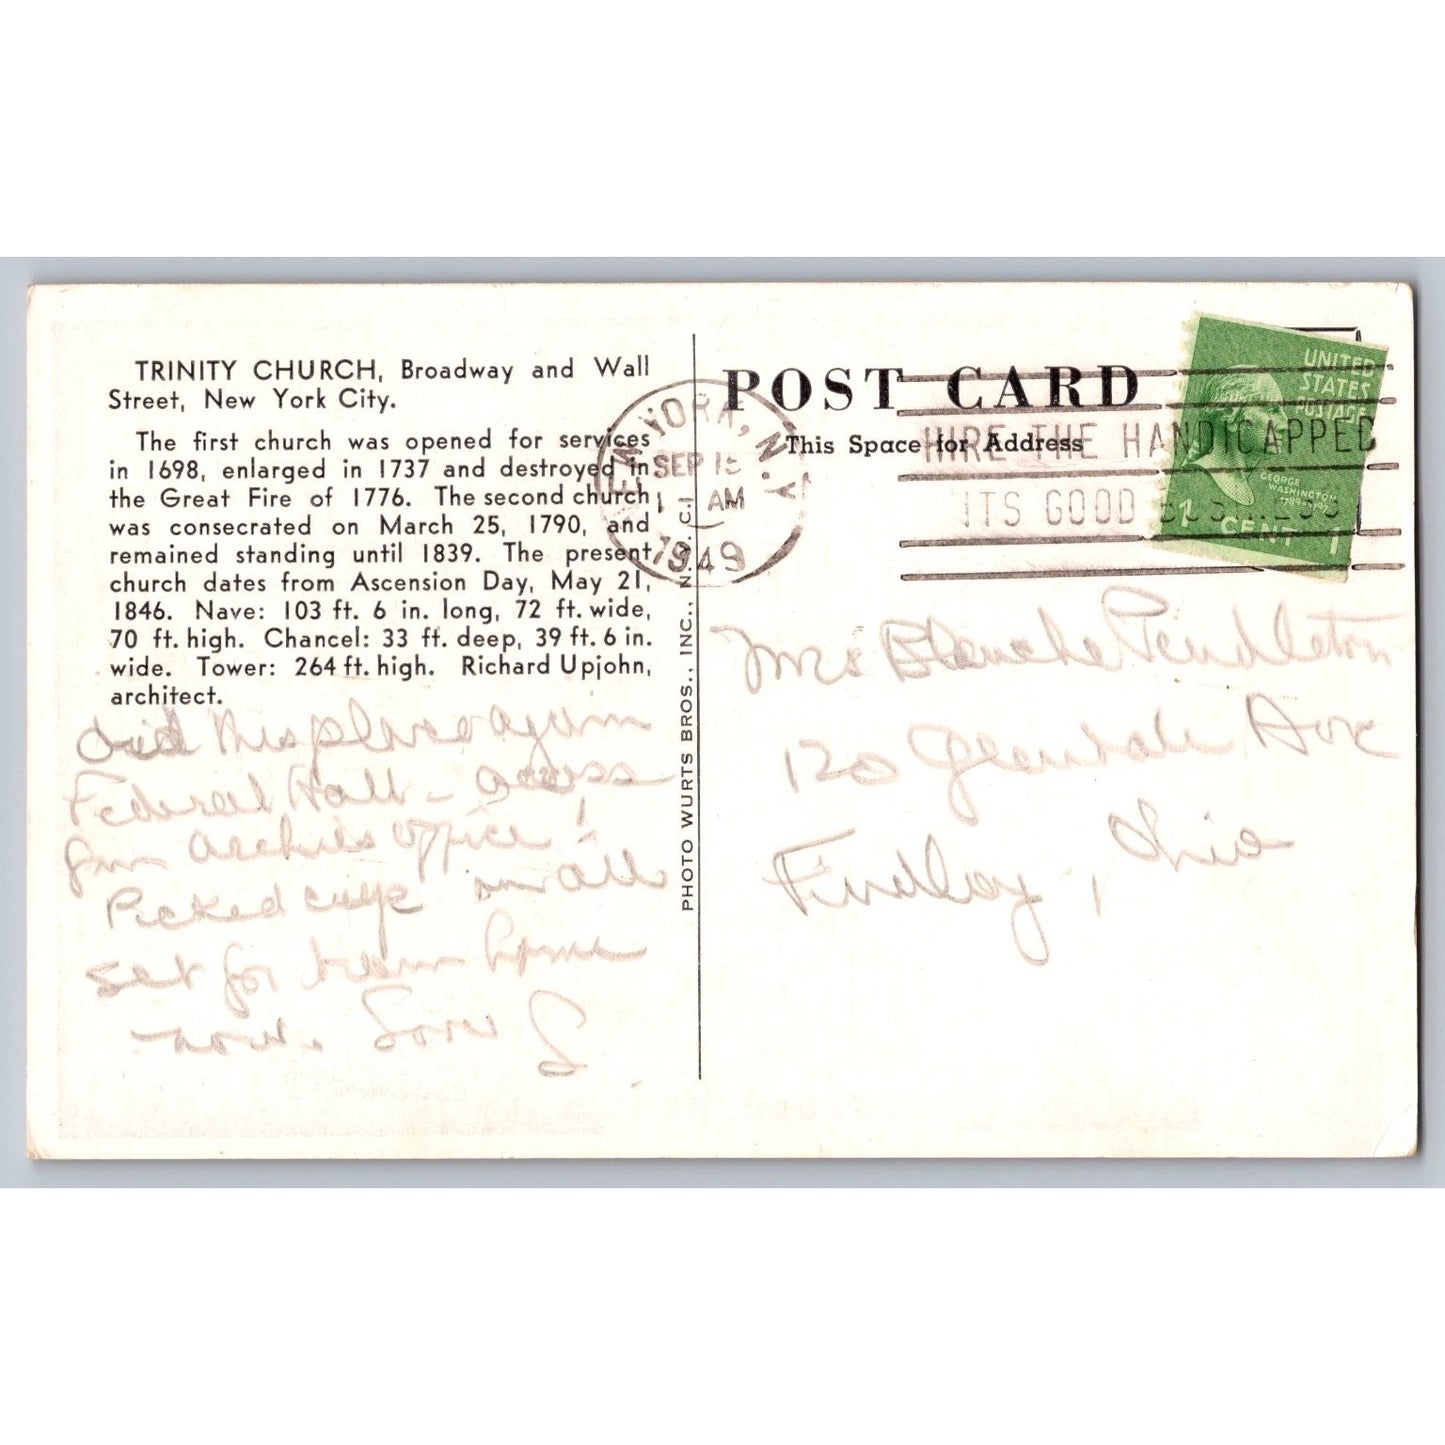 TRINITY CHURCH, Broadway and Wall
Street, New York City.
The first church was opened for services
in 1698, enlarged in 1737 and destroyed in
the Great Fire of 1776. The second church
was consecrated on March 25, 1790, and
remained standing until 1839. The present
church dates from Ascension Day, May 21,
1846. Nave: 103 ft. 6 in. long, 72 ft. wide,
70 ft. high. Chancel: 33 ft. deep, 39 ft. 6 in.
wide. Tower: 264 ft. high. Richard Upjohn,
architect.
Did this place again
Federal Hall - across
from Archies office!
Picked up
set for home
now. Love
PHOTO WURTS BROS., INC., N.Y.C.
NEW YORK, N.Y.
SEP 15
AM
1949
POST CARD
This Space for Address
HIRE THE HANDICAPPED
ITS GOOD BUSINESS
UNITED
STATES
POSTAGE
GEORGE
WASHINGTON
1789 1797
1 CENT 1
Mrs Blanche Pendleton
120 Glendale Ave
Findlay, Ohio